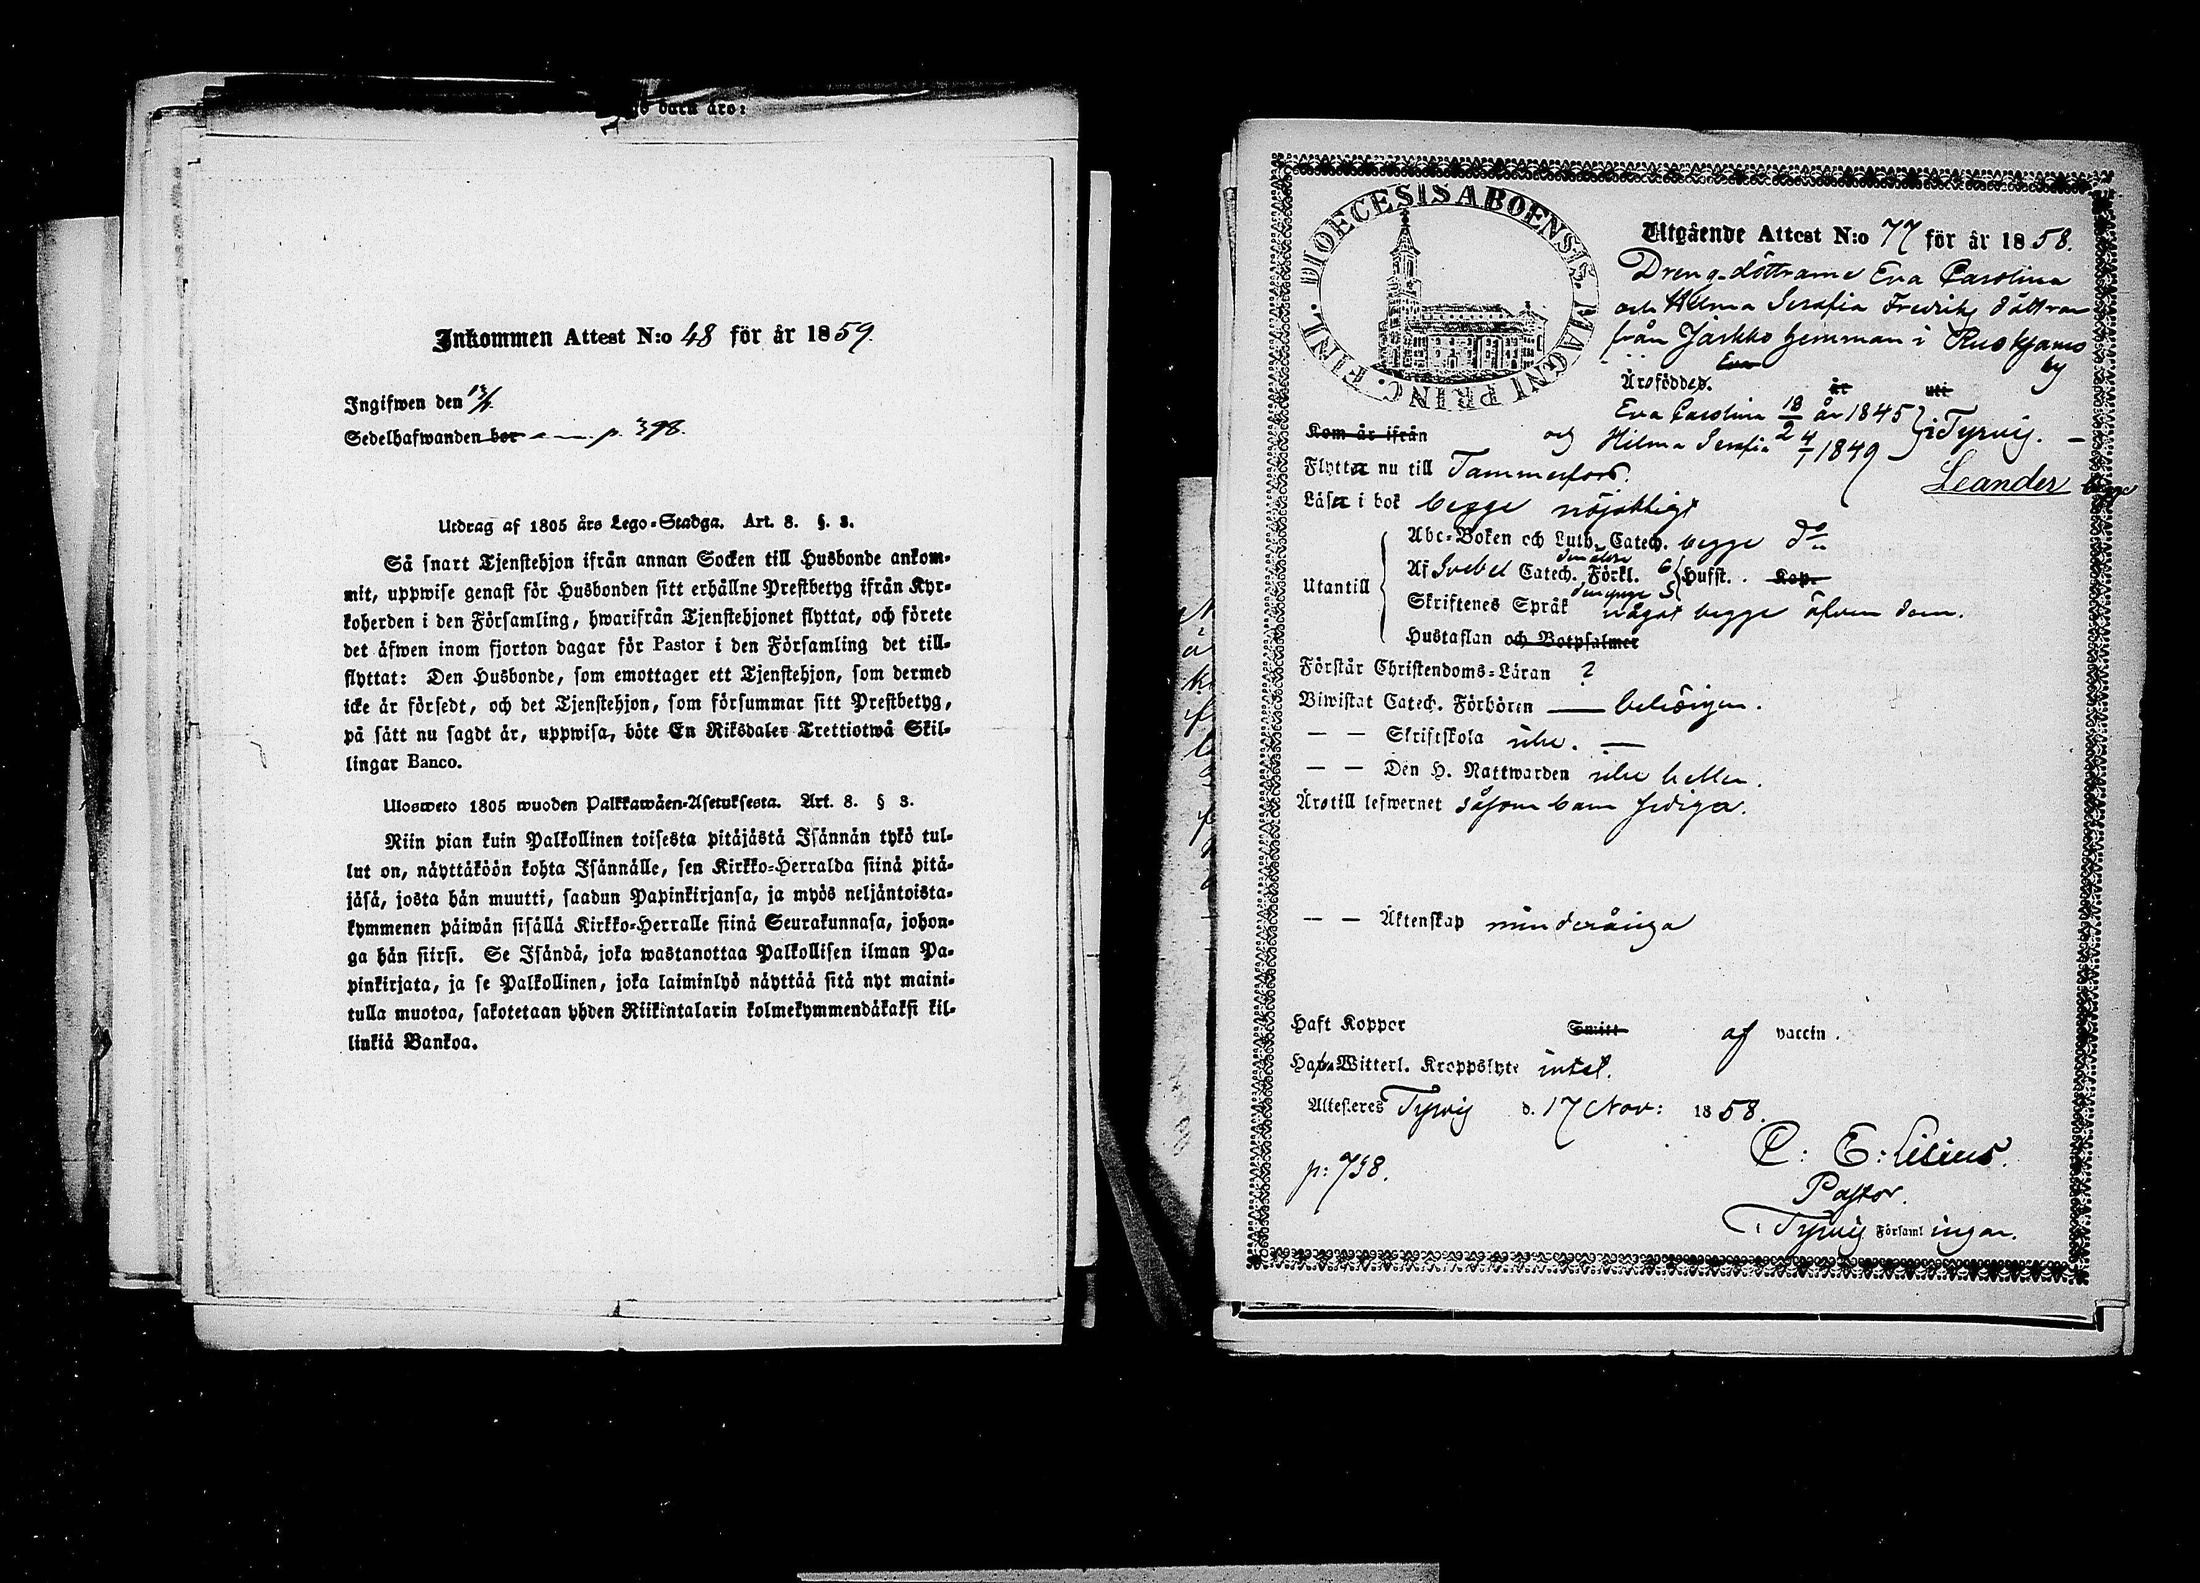 s barn äro:
Inkommen Attest N:o 48 för år 1859.
Ingifwen den 13/1.
Sedelhafwanden bor p. 398.
Utdrag af 1805 års Lego-Stadga. Art. 8. §. 3.
Så snart Tjenstehjon ifrån annan Socken till Husbonde ankom-
mit, uppwise genast för Husbonden sitt erhållne Prestbetyg ifrån Kyr-
koherden i den Församling, hwarifrån Tjenstehjonet flyttat, och förete
det äfwen inom fjorton dagar för Pastor i den Församling det till-
flyttat: Den Husbonde, som emottager ett Tjenstehjon, som dermed
icke är försedt, och det Tjenstehjon, som försummar sitt Prestbetyg,
på sätt nu sagdt är, uppwisa, böte En Riksdaler Trettiotwå Skil-
lingar Banco.
Ulosweto 1805 wuoden Palkkawäen-Asetuksesta. Art. 8. § 3.
Niin pian kuin Palkollinen toisesta pitäjästä Isännän tykö tul-
lut on, näyttäköön kohta Isännälle, sen Kirkko-Herralda siinä pitä-
jäsä, josta hän muutti, saadun Papinkirjansa, ja myös neljäntoista-
kymmenen päiwän sisällä Kirkko-Herralle siinä Seurakunnasa, johon-
ga hän siirsi. Se Isändä, joka wastanottaa Palkollisen ilman Pa-
pinkirjata, ja se Palkollinen, joka laiminlyö näyttää sitä nyt maini-
tulla muotoa, sakotetaan yhden Riikintalarin kolmekymmendäkaksi kil-
linkiä Bankoa.
DIOECESIS ABOENSIS. MAGNI PRINC. FINL.
Utgående Attest N:o 77 för år 1858.
Drengdöttrarne Eva Carolina
och Hilma Serafia Fredriks döttrar
från Jaskko hemman i Ruokjamo
by
Äro födde
år uti
Eva Carolina 18/2 år 1845 } i Tyrvis.
Kom år ifrån
och Hilma Serafia 4/1 1849
Flytta nu till Tammerfors.
Leander begge
Läsa i bok begge nöjaktligt
Abc-Boken och Luth. Catech. begge do
Utantill
den äldre
Af Svebel Catech. Förkl. 6 Hufst. Kap.
den yngre 5
Skriftenes Språk något begge äfven dem.
Hustaflan och Botpsalmer
Förstår Christendoms-Läran ?
Biwistat Catech. Förhören — behörigen.
— — Skriftskola icke. —
— — Den H. Nattwarden icke heller.
Äro till lefwernet såsom barn frediga.
— — Äktenskap minderåriga
Haft Koppor Smitt af vaccin.
Hafva Witterl. Kroppslyte intet.
Attesteres Tyrvis d. 17 Nov: 1858.
p: 738.
C: E: Lilius.
Pastor.
i Tyrvis Församlingar.